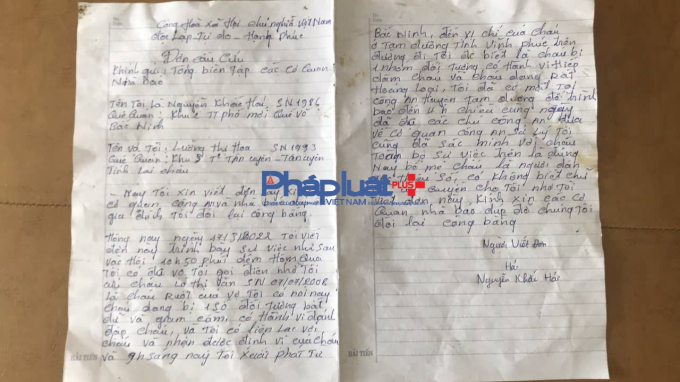 Cộng Hoà Xã Hội Chủ nghĩa Việt Nam
độc Lập Tự do - Hạnh Phúc
Đơn cầu Cứu
Kính gửi: Tổng biên Tập các Cơ Quan
Nhà Báo
Tên Tôi là Nguyễn Khắc Hải, SN 1986
Quê Quán: Khu TT phố mới Quế Võ
Bắc Ninh
Tên Vợ Tôi, Lường Thị Hoa SN 1993
Quê Quán: Khu 8 TT Tân uyên - Tân uyên
Tỉnh Lai châu
- Nay Tôi Xin viết đơn này
cơ quan, công an và nhà báo
gia đình Tôi đòi lại công bằng
Hôm nay ngày 19/3/2022 Tôi viết
đơn này trình bày Sự việc như Sau
vào Hồi 10h50 phút đêm Hôm Qua
Tôi có chị vợ Tôi gọi điện nhờ Tôi
cháu Lò Thị Vân SN 07/07/2008
là cháu Ruột của vợ Tôi có nói nay
cháu đang bị 1 Số đối Tượng bắt
dữ và giam cầm, có Hành vi đánh
đập cháu, và Tôi có liên Lạc với
cháu và nhận được định vị của cháu
và 9h Sáng nay Tôi Xuất Phát Từ
Bắc Ninh, đến vị chí của cháu
ở Tam dương Tỉnh Vĩnh Phúc trên
đường đi Tôi được biết là cháu bị
1 nhóm đối Tượng có Hành vi Hiếp
dâm cháu và cháu đang Rất
Hoảng Loạn, Tôi đã có mặt Tại
công an Huyện Tam dương để trình
báo đến 4h chiều cùng ngày
đã được các chú công an đưa
về cơ quan công an Sử Lý Tôi
cũng đã Sác minh với cháu
Toàn bộ Sự việc trên là đúng
Nay bố mẹ cháu là người dân
Thiểu Số, có không biết chữ
Quyền cho Tôi nhờ Tôi
viết đơn này, Kính xin các cơ
Quan, nhà báo giúp đỡ chúng Tôi
đòi lại công bằng
Người Viết Đơn
Hải
Nguyễn Khắc Hải
Phápluật PLUS
VIỆT NAM
HẢI TIẾN
HẢI TIẾN